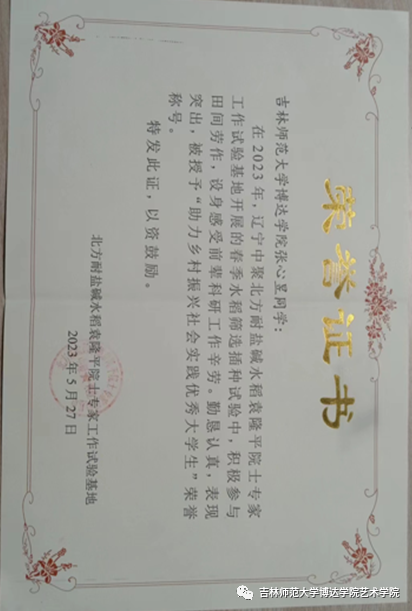 荣誉证书
吉林师范大学博达学院张心昱同学：
在2023年，辽宁中聚北方耐盐碱水稻袁隆平院士专家
工作试验基地开展的春季水稻筛选插种试验中，积极参与
田间劳作，设身感受前辈科研工作辛劳。勤恳认真，表现
突出，被授予“助力乡村振兴社会实践优秀大学生”荣誉
称号。
特发此证，以资鼓励。
北方耐盐碱水稻袁隆平院士专家工作试验基地
2023年5月27日
吉林师范大学博达学院艺术学院